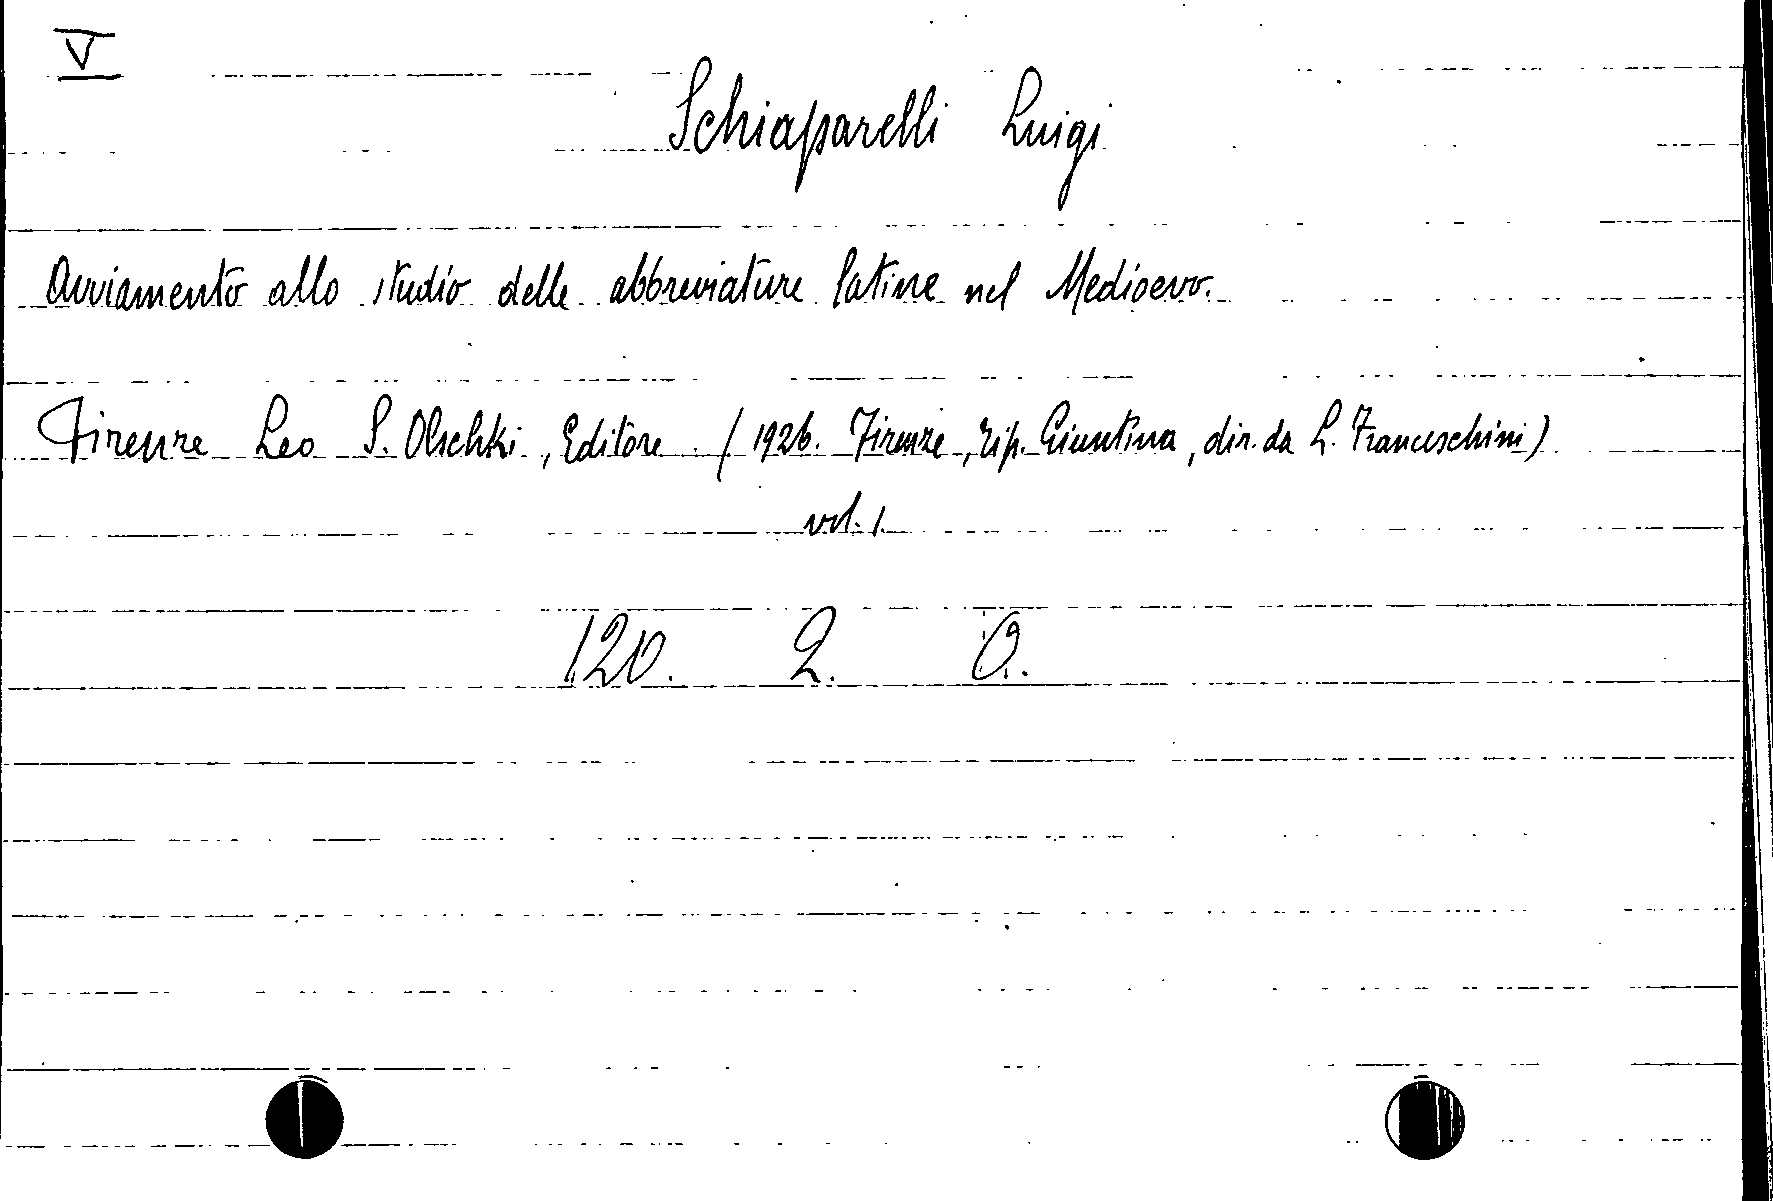 V
Schiaparelli Luigi
Avviamento allo studio delle abbreviature latine nel Medioevo.
Firenze Leo S. Olschki, Editore. (1926. Firenze, Tip. Giuntina, dir. da L. Franceschini)
vol. 1.
120. 2. O.